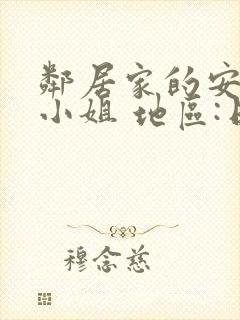 鄰居家的安
小姐 地區:
穆念慈